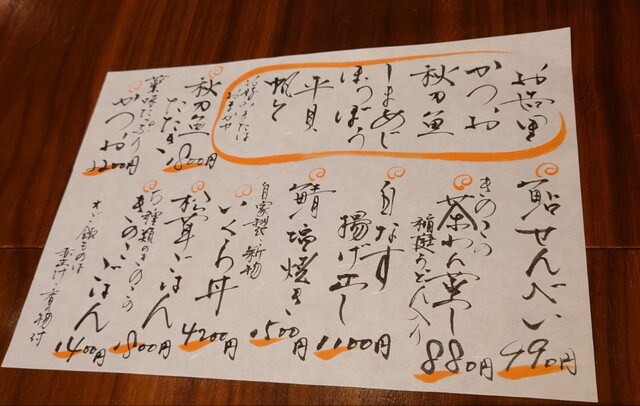 お造里
かつお
秋刀魚
しまあじ
ほうぼう
平貝
帆立
秋刀魚
たたき
1800円
薬味たっぷり
かつお
2200円
鮎せんべい
990円
きのこの
茶わん蒸し
稲庭うどん入り
880円
白なす
揚げ出し
1100円
鯖塩焼き
1500円
自家製・新物
いくら丼
4200円
松茸ごはん
1800円
5種類のきのこの
きのこごはん
1400円